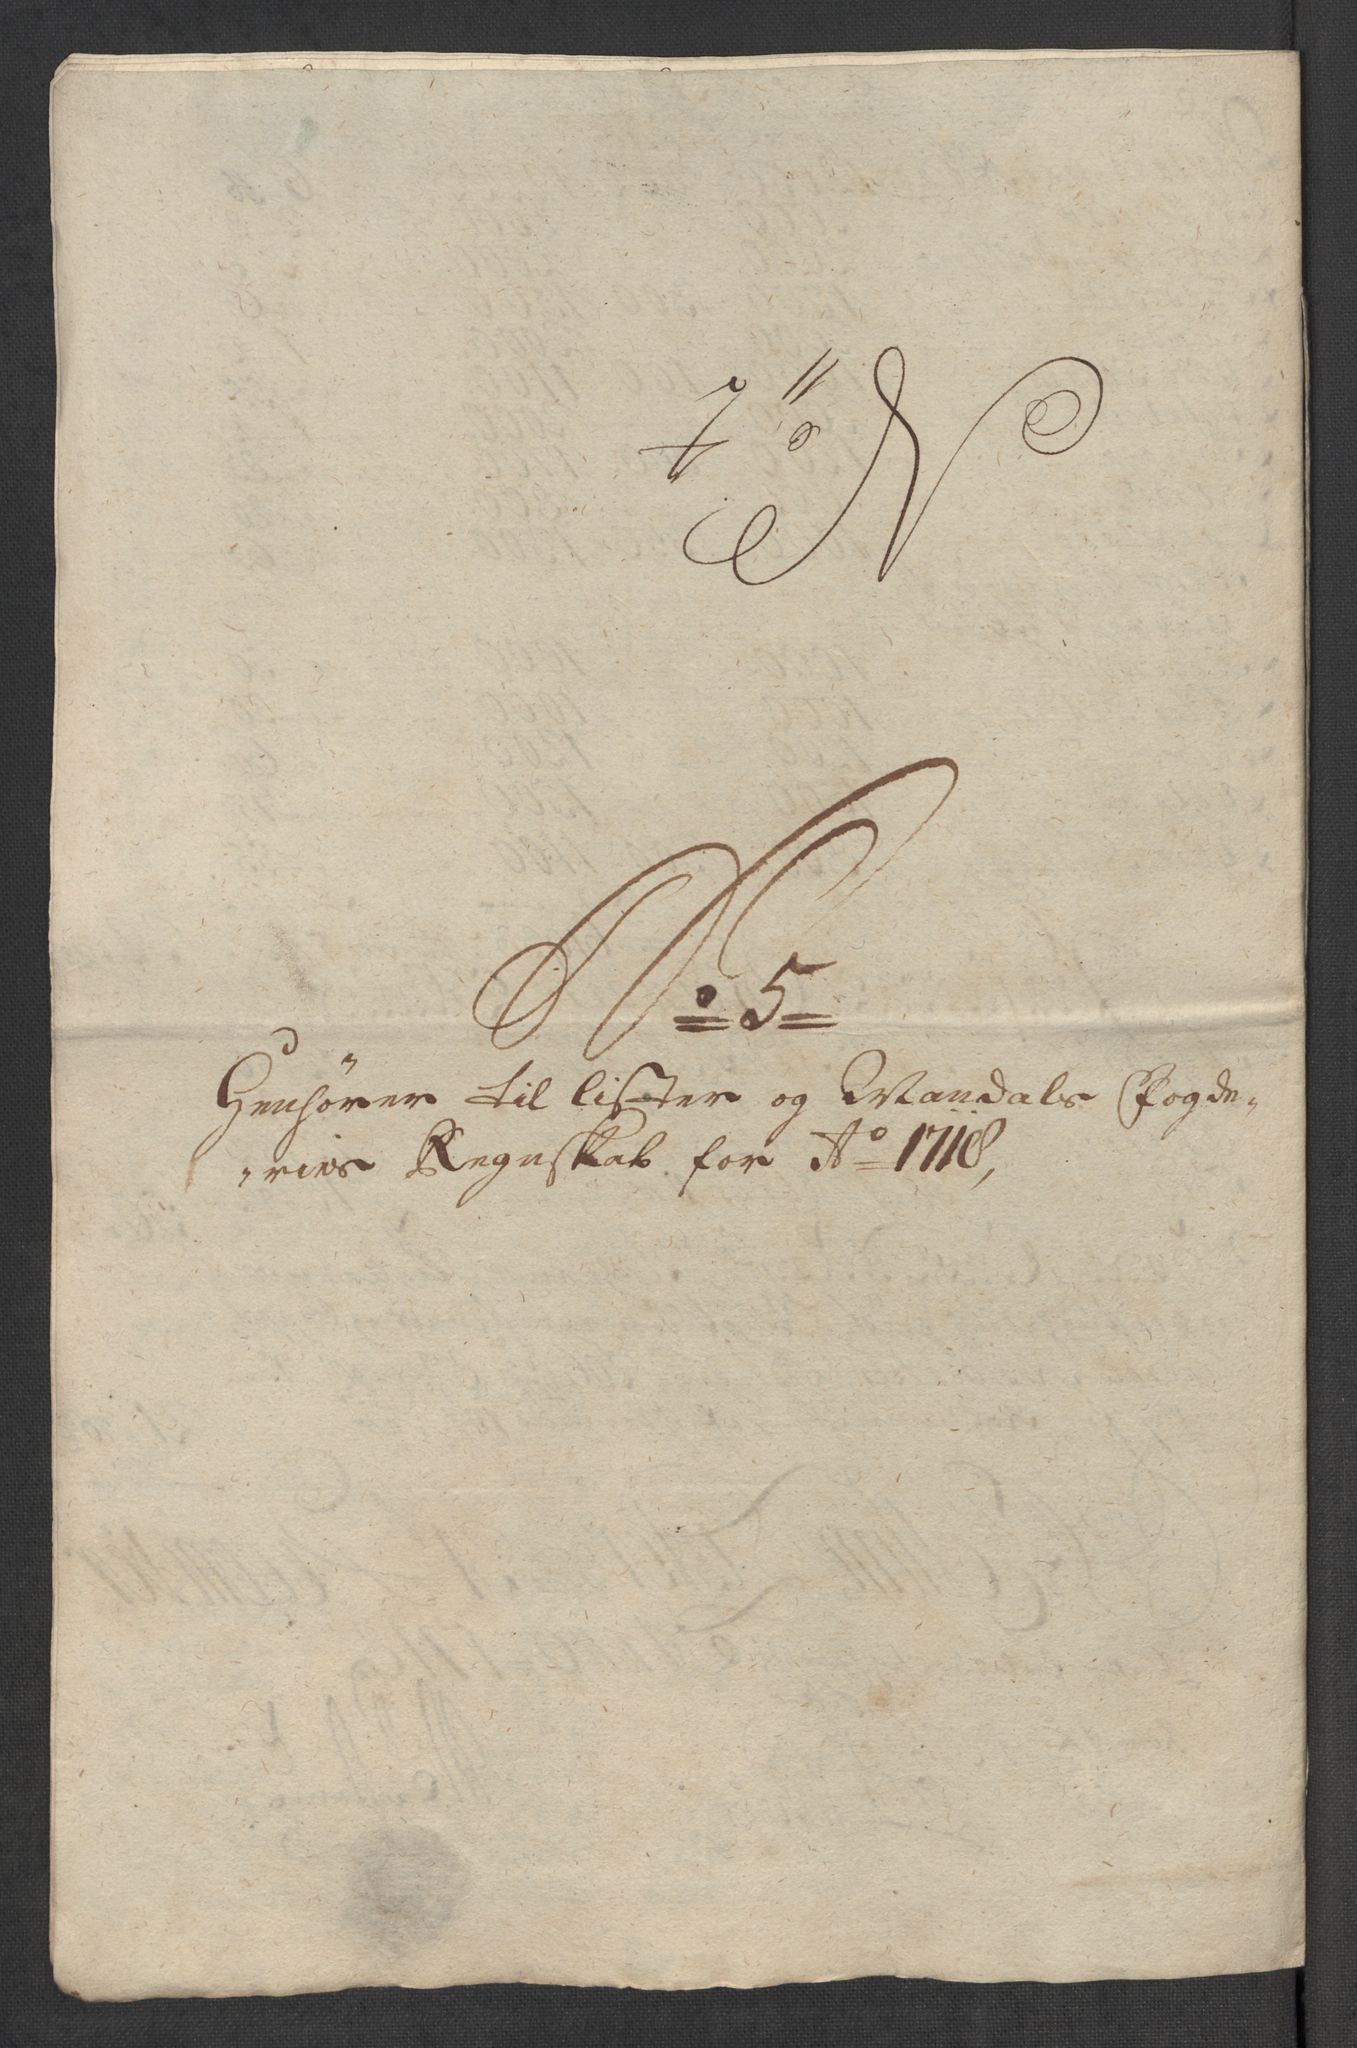 No 5
Henhører til Lister og Mandals Fogde-
-ries Regnskab for Ao 1718,